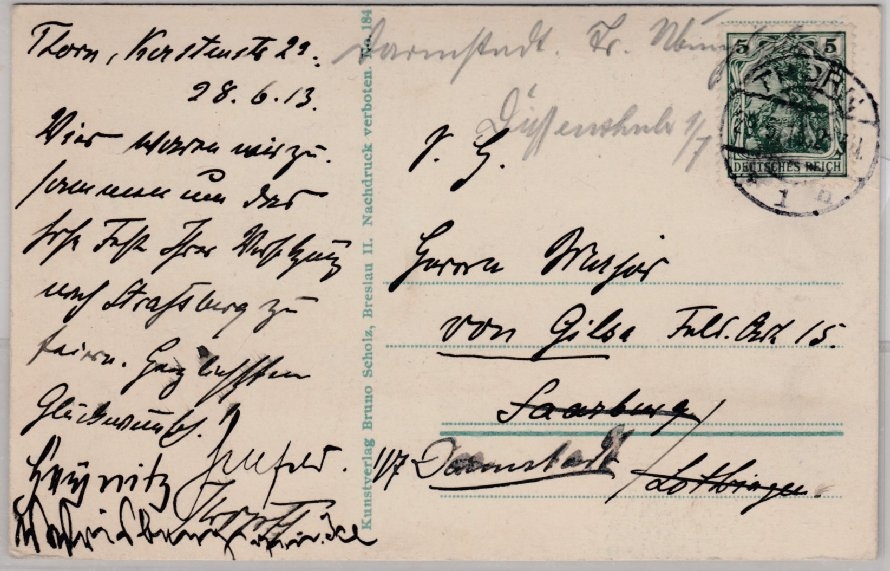 Thorn, Kerstenstr 22.
28. 6. 13.
Vier waren wir zu-
sammen um das
Fest Ihrer Versetzung
nach Straßburg zu
feiern. Herzlichsten
Glückwunsch!
Kunstverlag Bruno Scholz, Breslau II. Nachdruck verboten. No. 184
Darmstadt. Tr.
1/7
5 5
DEUTSCHES REICH
THORN
1
S. H.
Herrn Major
von Gilsa Feld. Art 15.
Saarburg
1/7 Darmstadt
Lothringen.